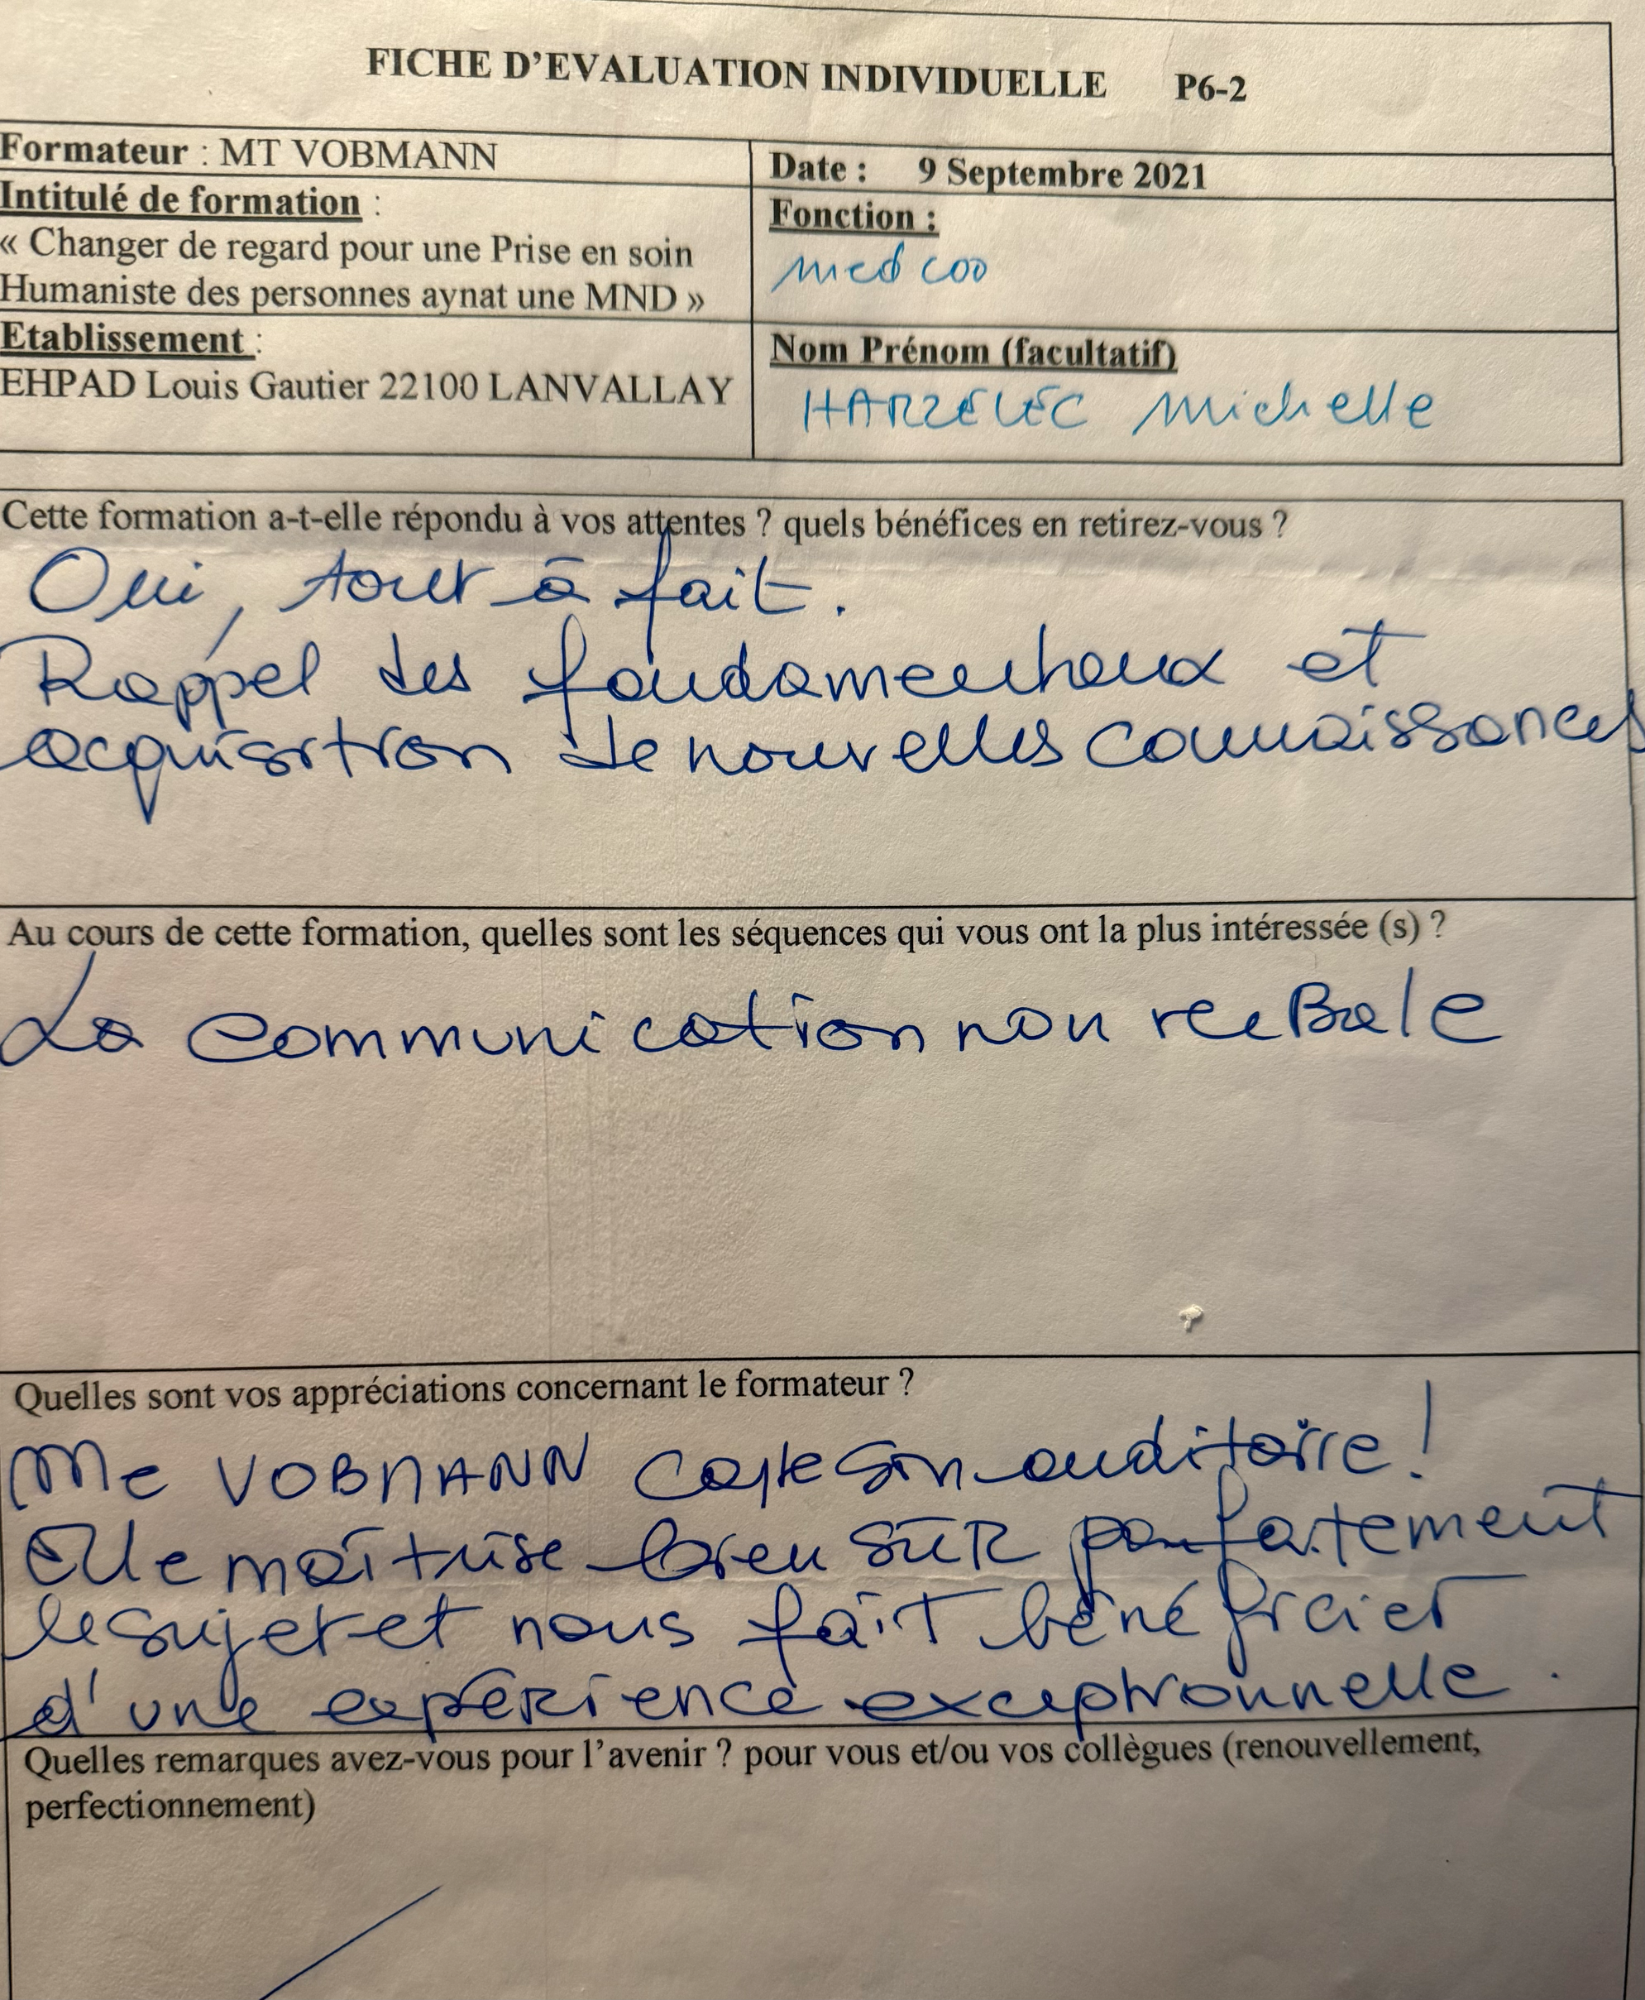 FICHE D'EVALUATION INDIVIDUELLE P6-2
Formateur : MT VOBMANN
Date : 9 Septembre 2021
Intitulé de formation :
« Changer de regard pour une Prise en soin
Humaniste des personnes aynat une MND »
Fonction :
med coo
Etablissement :
EHPAD Louis Gautier 22100 LANVALLAY
Nom Prénom (facultatif)
Michelle
Cette formation a-t-elle répondu à vos attentes ? quels bénéfices en retirez-vous ?
Oui, tout à fait.
Rappel des fondamentaux et
acquisition de nouvelles connaissances
Au cours de cette formation, quelles sont les séquences qui vous ont la plus intéressée (s) ?
La communication non verBale
Quelles sont vos appréciations concernant le formateur ?
Me VOBMANN capte son auditoire !
Elle maîtrise bien sûR parfaitement
le sujet et nous fait bénéficier
d'une expérience exceptionnelle.
Quelles remarques avez-vous pour l'avenir ? pour vous et/ou vos collègues (renouvellement,
perfectionnement)